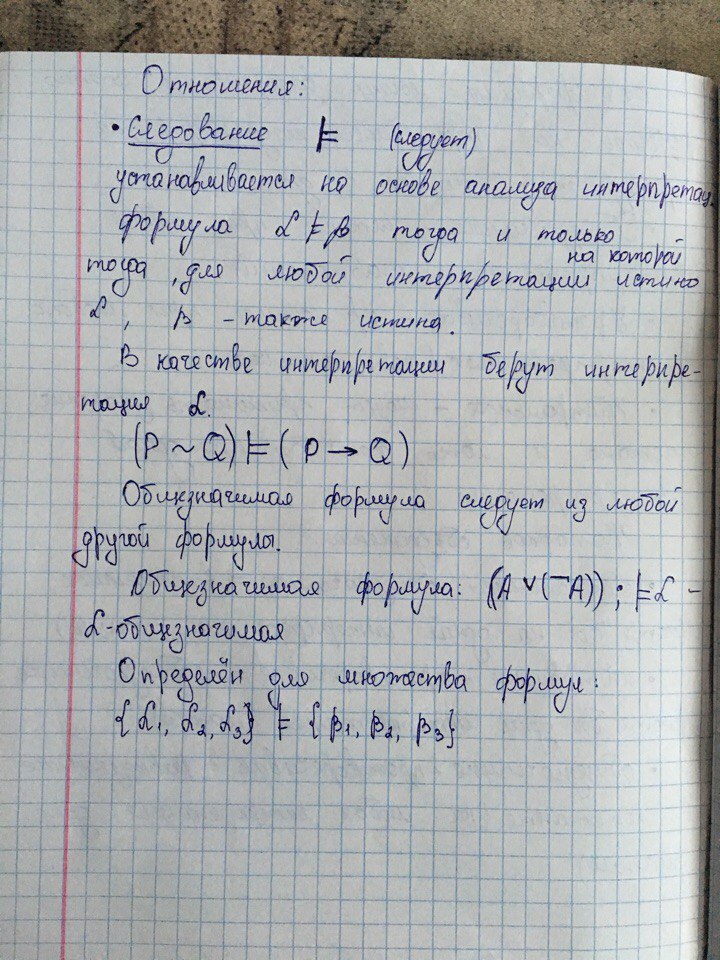 Отношения:
• Следование ⊨ (следует)
устанавливается на основе анализа интерпретац.
формула α ⊨ β тогда и только
тогда, для любой интерпретации на которой истино
α, β - также истина.
В качестве интерпретации берут интерпре-
тация α.
(P ~ Q) ⊨ (P → Q)
Общезначимая формула следует из любой
другой формулы.
Общезначимая формула: ((A ∨ (¬A)); ⊨ α -
α-общезначимая
Определён для множества формул:
{α₁, α₂, α₃} ⊨ {β₁, β₂, β₃}